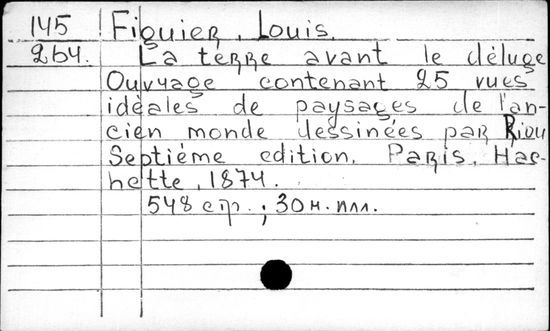 145 Figuier, Louis.
264. La terre avant le déluge
Ouvrage contenant 25 vues
idéales de paysages de l'an-
cien monde dessinées par Riou
Septième edition. Paris. Hac-
hette, 1874.
548 стр.; 30 н. илл.